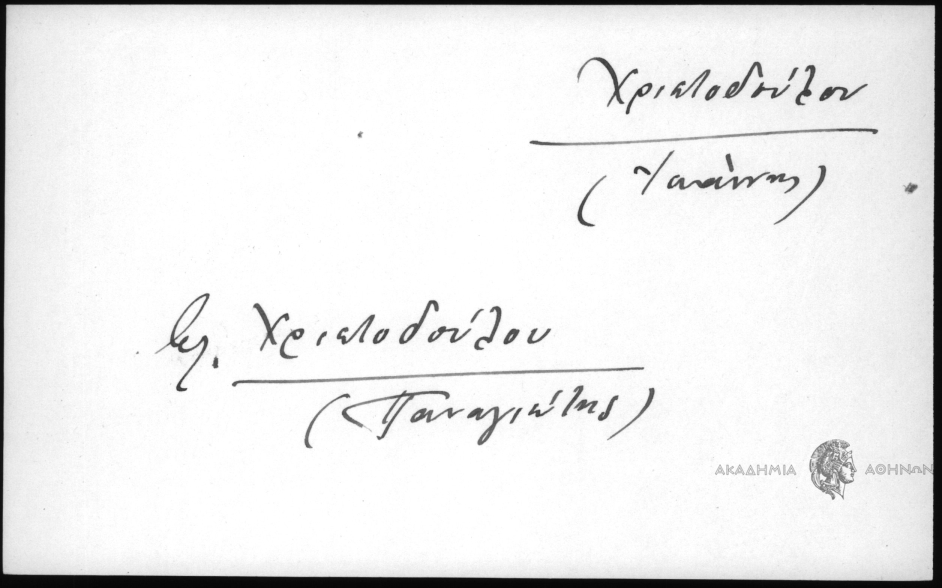 Χριστοδούλου
(Ἰωάννης)
Βλ. Χριστοδούλου
(Παναγιώτης)
ΑΚΑΔΗΜΙΑ ΑΘΗΝΩΝ